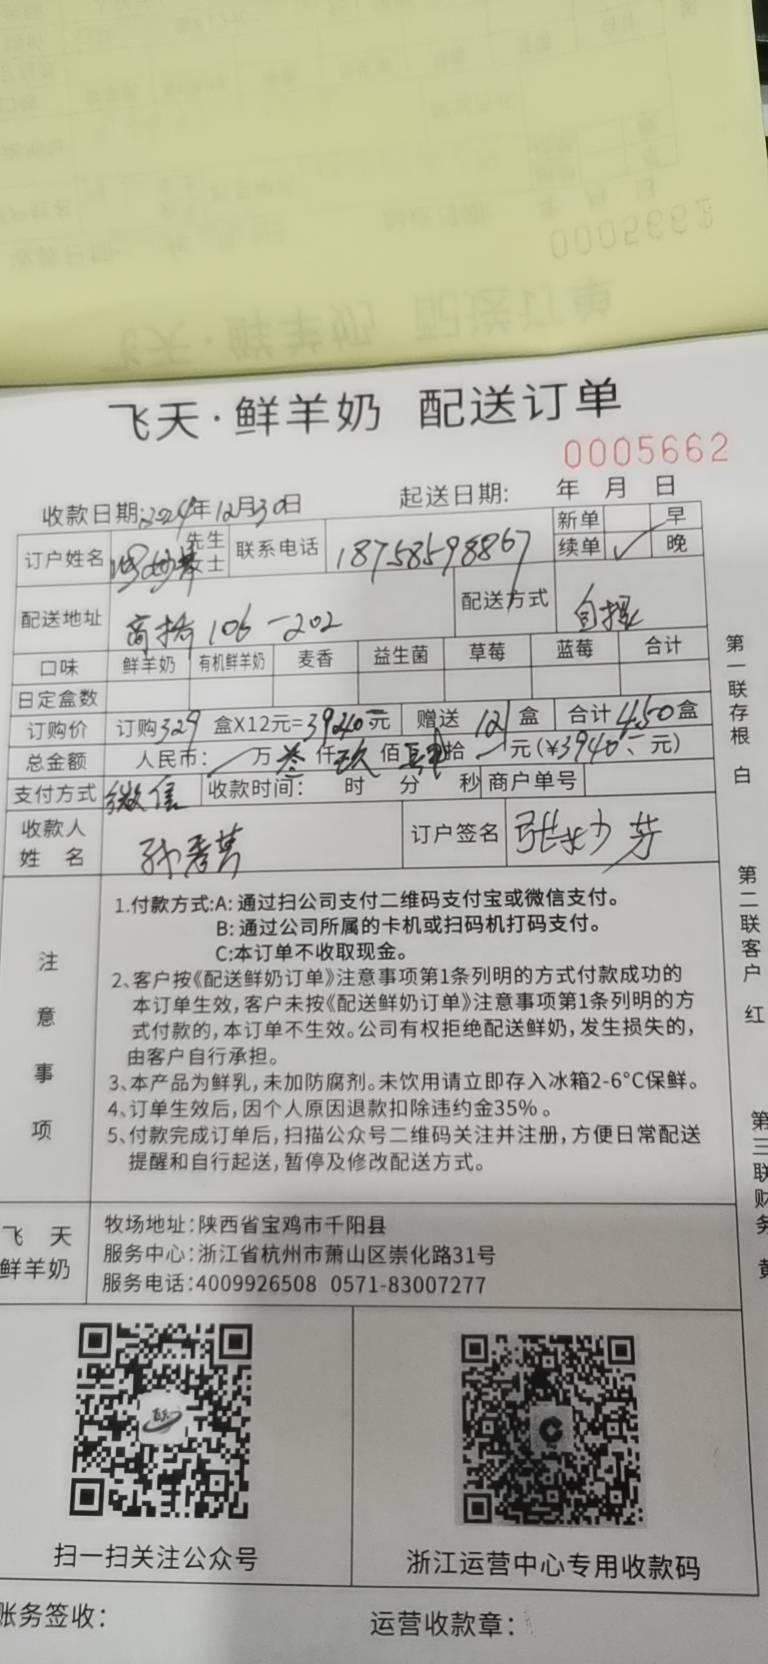 飞天·鲜羊奶 配送订单
0005662
收款日期:2024年12月30日 起送日期: 年 月 日
订户姓名 先生 女士 联系电话 18758598867 新单 早
续单 ✓ 晚
配送地址 高桥106-202 配送方式 自提
口味 鲜羊奶 有机鲜羊奶 麦香 益生菌 草莓 蓝莓 合计
日定盒数
订购价 订购329盒X12元=3940元 赠送121盒 合计450盒
总金额 人民币: 万叁仟玖佰肆拾 元(¥3940元)
支付方式 微信 收款时间: 时 分 秒 商户单号
收款人
姓 名 订户签名 张少芳
注意事项
1.付款方式:A:通过扫公司支付二维码支付宝或微信支付。
B:通过公司所属的卡机或扫码机打码支付。
C:本订单不收取现金。
2、客户按《配送鲜奶订单》注意事项第1条列明的方式付款成功的
本订单生效,客户未按《配送鲜奶订单》注意事项第1条列明的方
式付款的,本订单不生效。公司有权拒绝配送鲜奶,发生损失的,
由客户自行承担。
3、本产品为鲜乳,未加防腐剂。未饮用请立即存入冰箱2-6°C保鲜。
4、订单生效后,因个人原因退款扣除违约金35%。
5、付款完成订单后,扫描公众号二维码关注并注册,方便日常配送
提醒和自行起送,暂停及修改配送方式。
飞 天
鲜羊奶
牧场地址:陕西省宝鸡市千阳县
服务中心:浙江省杭州市萧山区崇化路31号
服务电话:4009926508 0571-83007277
扫一扫关注公众号
浙江运营中心专用收款码
账务签收: 运营收款章:
第一联存根 白
第二联客户 红
第三联财务 黄